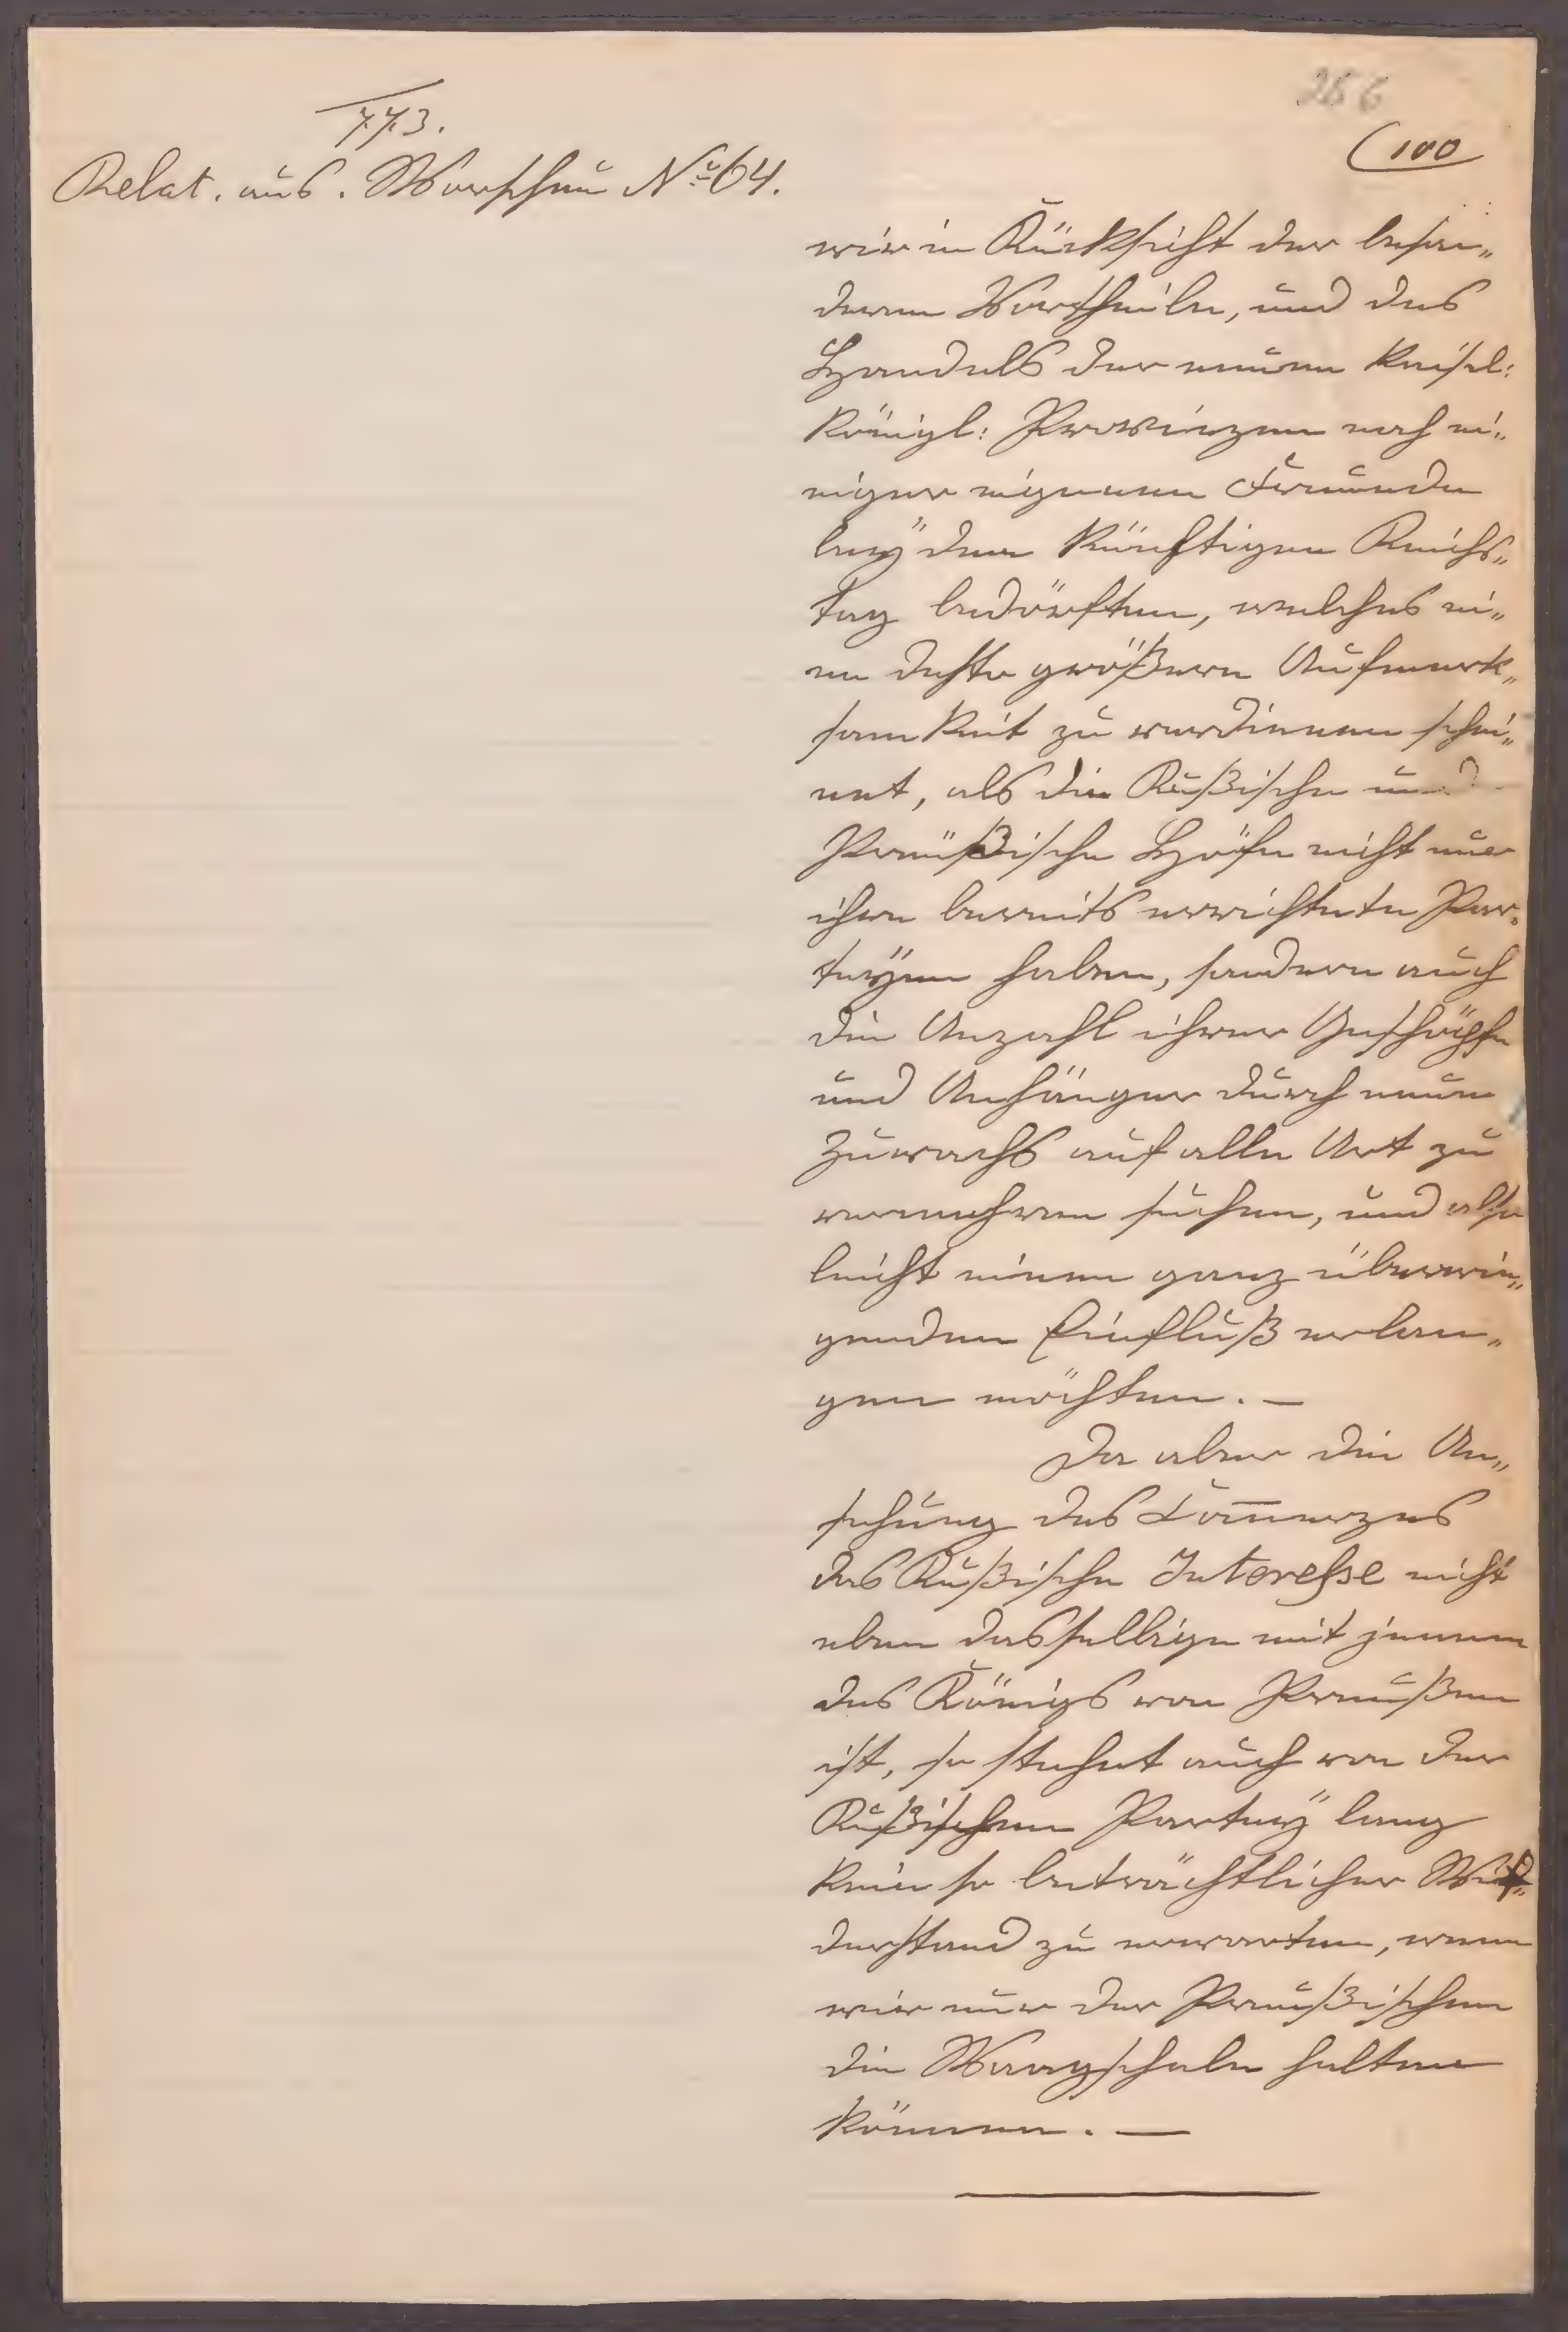 266
773.
(100
Relat. aus. Warschau No 64.
wir in Rücksicht der beson„
deren Vortheile, und des
Handels der neuen Kaisel:
Königl: Provinzen noch ei„
niger eigenen Freunde
beÿ dem künftigen Reichs„
tag bedörften, welches ei„
ne desto größere Aufmerk„
samkeit zu verdienen schei„
net, als die Rußische und
Preüßische Höfe nicht nur
ihre bereits errichtete Par„
teÿen haben, sondern auch
die Anzahl ihrer Geschöpfe
und Anhänger durch neuen
Zuwachs auf alle Art zu
vermehren suchen, und also
leicht einen ganz überwie„
genden Einfluß erlan„
gen möchten. —
Da aber die An„
sehung des Com̅erzes
das Rußische Interesse nicht
eben dasselbige mit jenem
des Königs von Preußen
ist, so stehet auch von der
Rußischen Parteÿ lang
kein so beträchtlicher Wid„
derstand zu erwarten, wenn
wir nur der Preußischen
die Waagschale halten
können. —